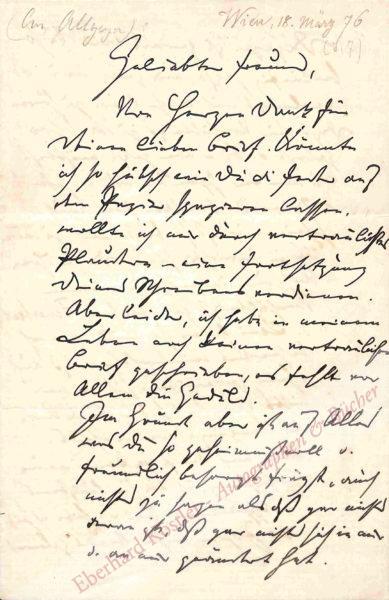 (An Allgeyer)
Wien, 18. März 76
(87?)
Geliebter Freund,
Von Herzen Dank für
Deinen lieben Brief. Könnte
ich so hübsch wie Du die Feder auf
dem Papier spazieren lassen,
wollte ich mir durch vertraulichstes
Plaudern eine Fortsetzung
Deines Schreibens verdienen.
Aber leider, ich habe in meinem
Leben noch keinen vertraulichen
Brief geschrieben, es fehlt vor
Allem die Geduld.
Im Grunde aber ist auf Alles
was Du so geheimnißvoll u.
freundlich besorgt frägst, auch
nichts zu sagen als daß gar nichts
daran ist, daß gar nichts sich in mir
u. an mir geändert hat.
Eberhard Köstler Autographen & Bücher